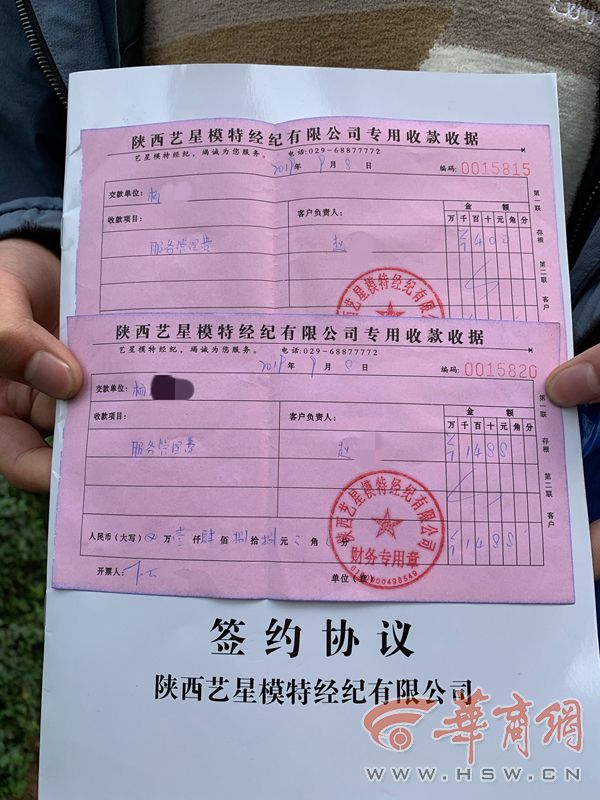 陕西艺星模特经纪有限公司专用收款收据
艺星模特经纪，竭诚为您服务。 电话:029-68877772
2019年9月8日 编码:0015815
交款单位: 杨
收款项目: 客户负责人: 金额
万千百十元角分
服务管理费 赵
第一联 存根 第二联 客户
陕西艺星模特经纪有限公司
陕西艺星模特经纪有限公司专用收款收据
艺星模特经纪，竭诚为您服务。 电话:029-68877772
2019年9月8日 编码:0015820
交款单位: 杨
收款项目: 客户负责人: 金额
万千百十元角分
服务管理费 赵 1488
第一联 存根 第二联 客户
人民币(大写) 万壹仟肆佰捌拾捌元 角 分 1488
开票人: 单位(章)
陕西艺星模特经纪有限公司
财务专用章
签约协议
陕西艺星模特经纪有限公司
華商網
WWW.HSW.CN